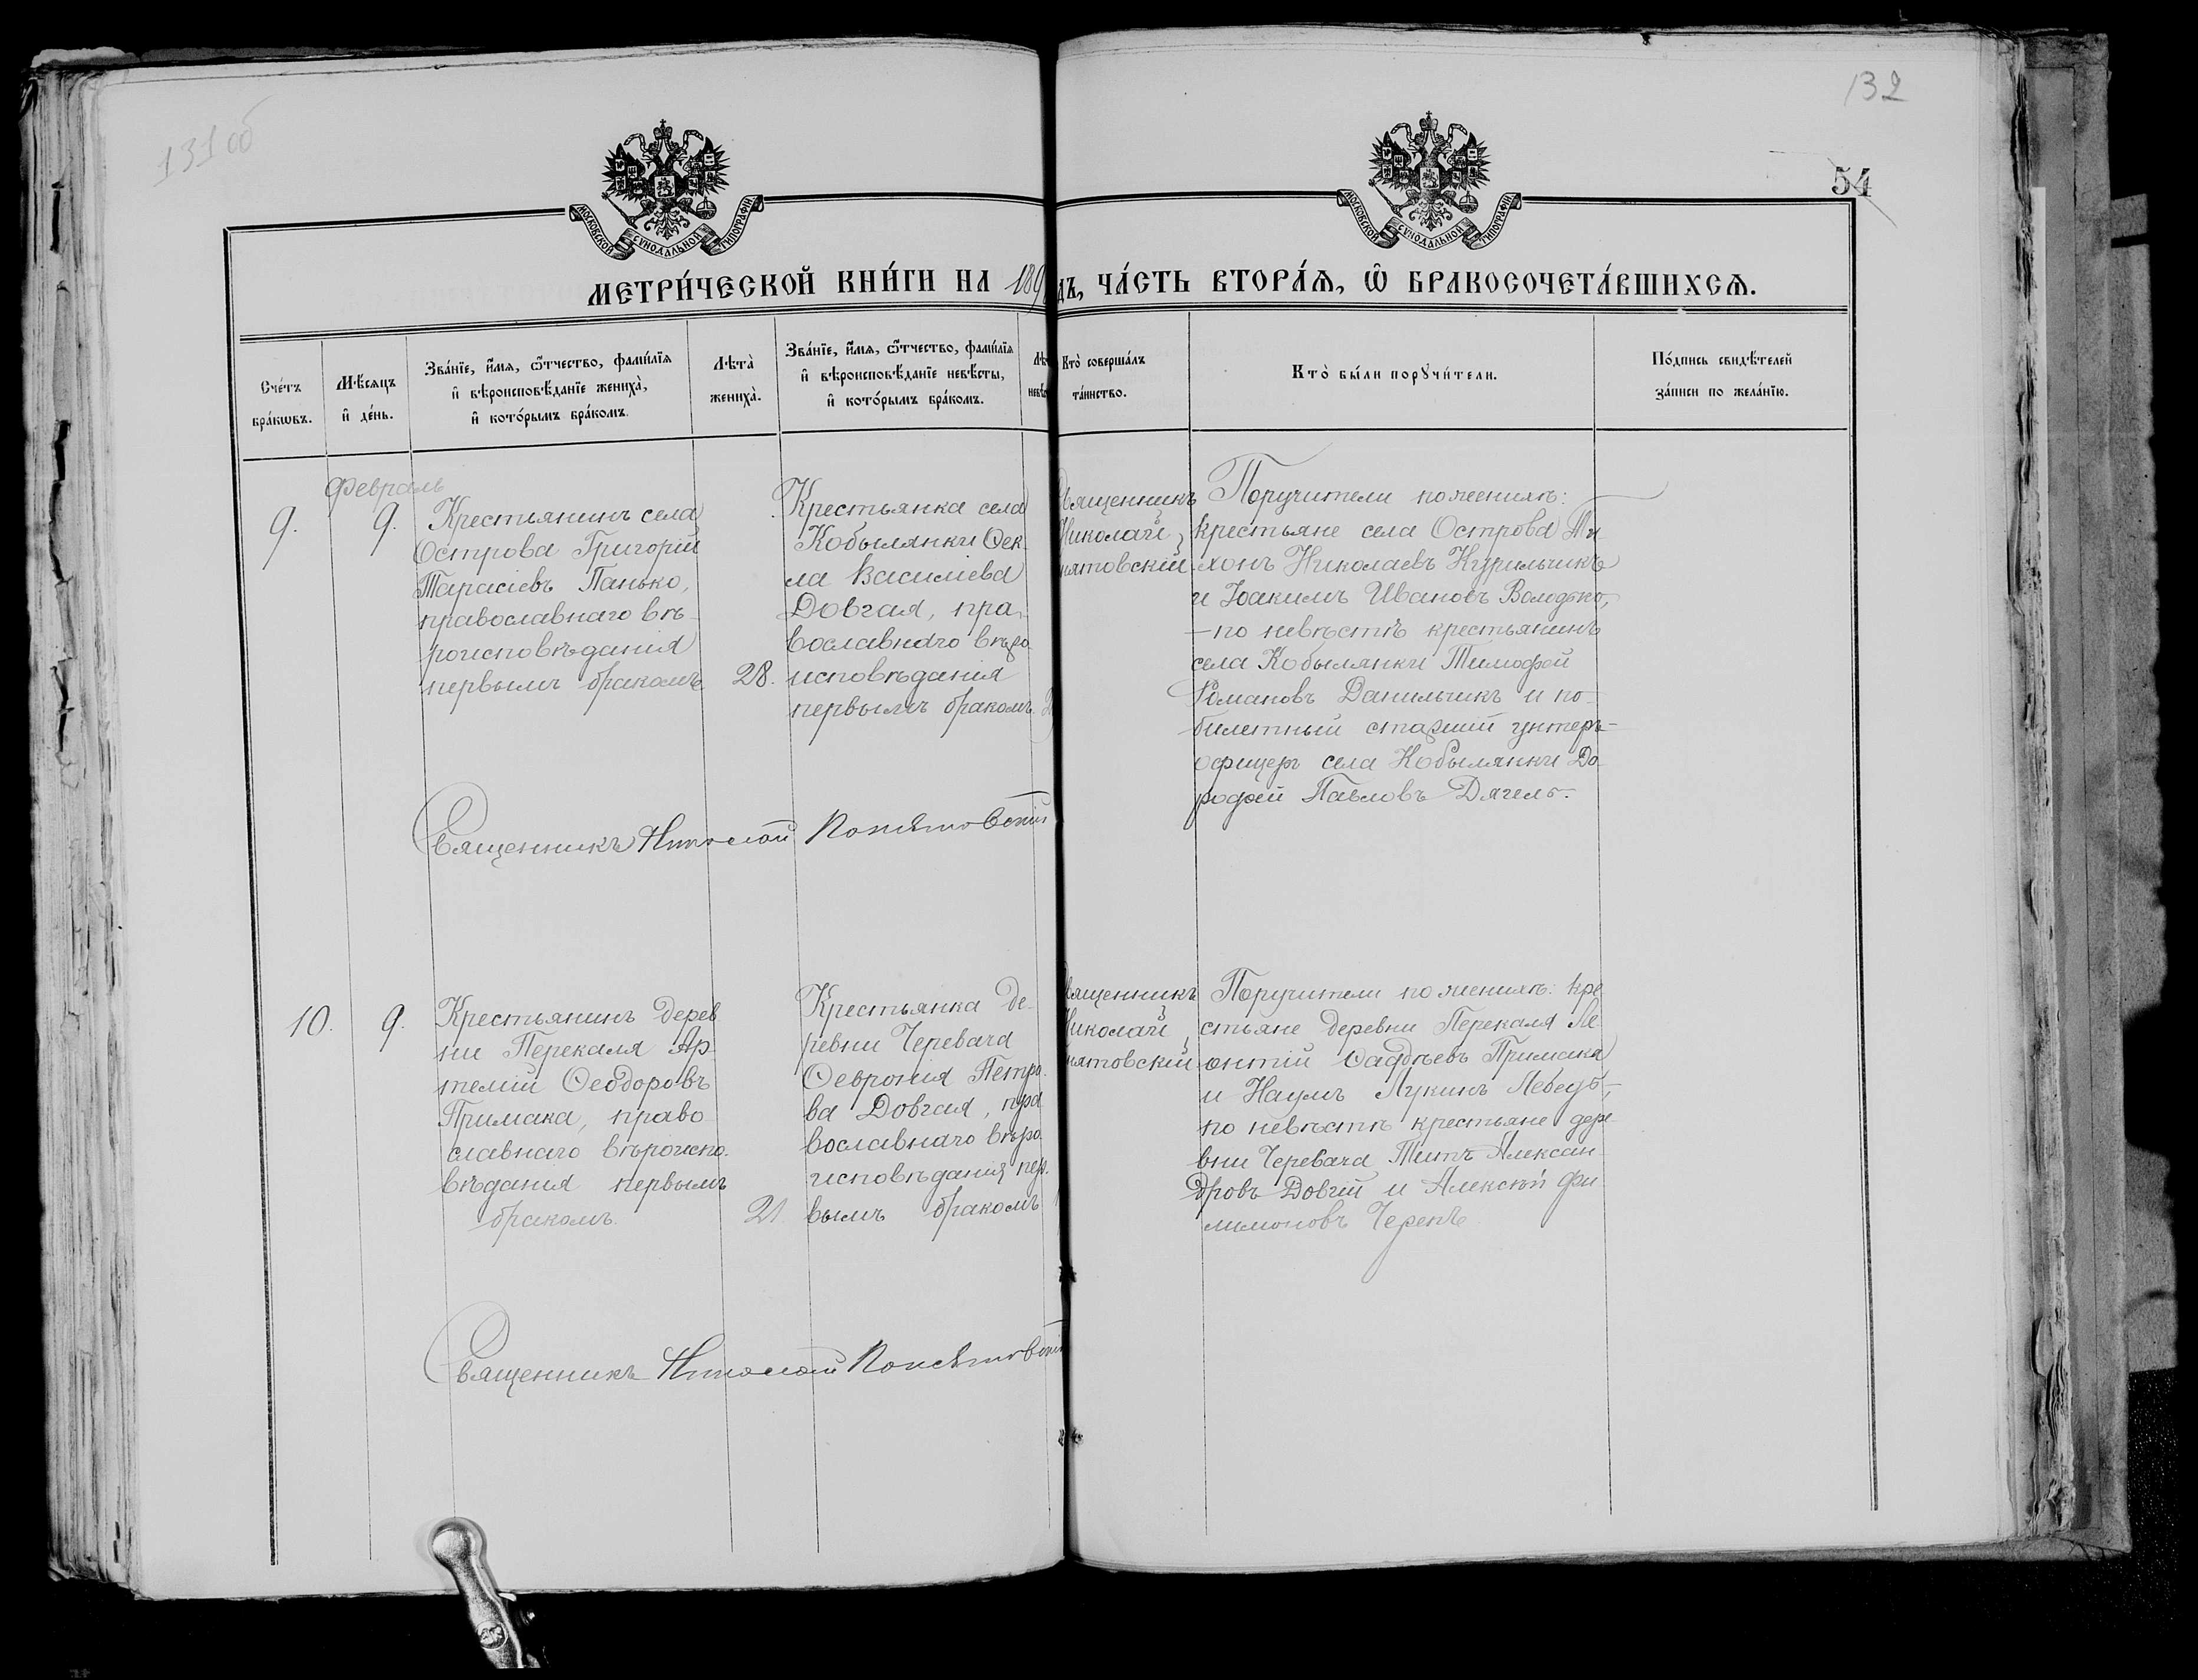 131 об
132
54
МОСКОВСКОЙ СѴНОДАЛЬНОЙ ТИПОГРАФІИ
МОСКОВСКОЙ СѴНОДАЛЬНОЙ ТИПОГРАФІИ
МЕТРИ́ЧЕСКОЙ КНИ́ГИ НА 189
дъ, ЧА́СТЬ ВТОРА́Я, Ѡ БРАКОСОЧЕТА́ВШИХСЯ.
Сче́тъ
бра́ковъ.
Мѣ́сяцъ
и де́нь.
Зва́нїе, и́мя, ѻ́тчество, фами́лїя
и вѣроисповѣ́данїе жениха̀,
и кото́рымъ бра́комъ.
Лѣта̀
жениха̀.
Зва́нїе, и́мя, ѻ́тчество, фами́лїя
и вѣроисповѣ́данїе невѣ́сты,
и кото́рымъ бра́комъ.
Кто̀ соверша́лъ
та́инство.
Кто̀ бы́ли порꙋчи́тели.
По́дпись свидѣ́телей
за́писи по жела́нїю.
Февраль
9.
9.
Крестьянинъ села
Острова Григорій
Тарасіевъ Панько,
православнаго вѣ-
роисповѣданія
первымъ бракомъ.
28.
Крестьянка села
Кобылянки Ѳек-
ла Василіева
Довгая, пра-
вославнаго вѣро-
исповѣданія
первымъ бракомъ.
Священникъ
Николай
нятовскій.
Поручители по женихѣ:
крестьяне села Острова Ти-
хонъ Николаевъ Курильчикъ
и Іоакимъ Ивановъ Володько,
– по невѣстѣ крестьянинъ
села Кобылянки Тимофей
Романовъ Данильчикъ и по-
билетный старшій унтеръ-
офицеръ села Кобылянки До-
рофей Павловъ Дягель.
Священникъ Николай Понятовскій
10.
9.
Крестьянинъ дерев
ни Перекаля Ар-
темій Ѳеодоровъ
Примака, право
славнаго вѣроиспо-
вѣданія первымъ
бракомъ.
21.
Крестьянка де-
ревни Черевача
Ѳевронія Петро-
ва Довгая, пра
вославнаго вѣро-
исповѣданія пер-
вымъ бракомъ
Священникъ
Николай
нятовскій
Поручители по женихѣ: кре
стьяне деревни Перекаля Ле-
онтій Ѳаддѣевъ Примака
и Наумъ Лукинъ Лебедь,–
по невѣстѣ крестьяне дере-
вни Черевача Титъ Алексан-
дровъ Довгій и Алексѣй Фи
лимоновъ Черепъ
Священникъ Николай Понятовскій